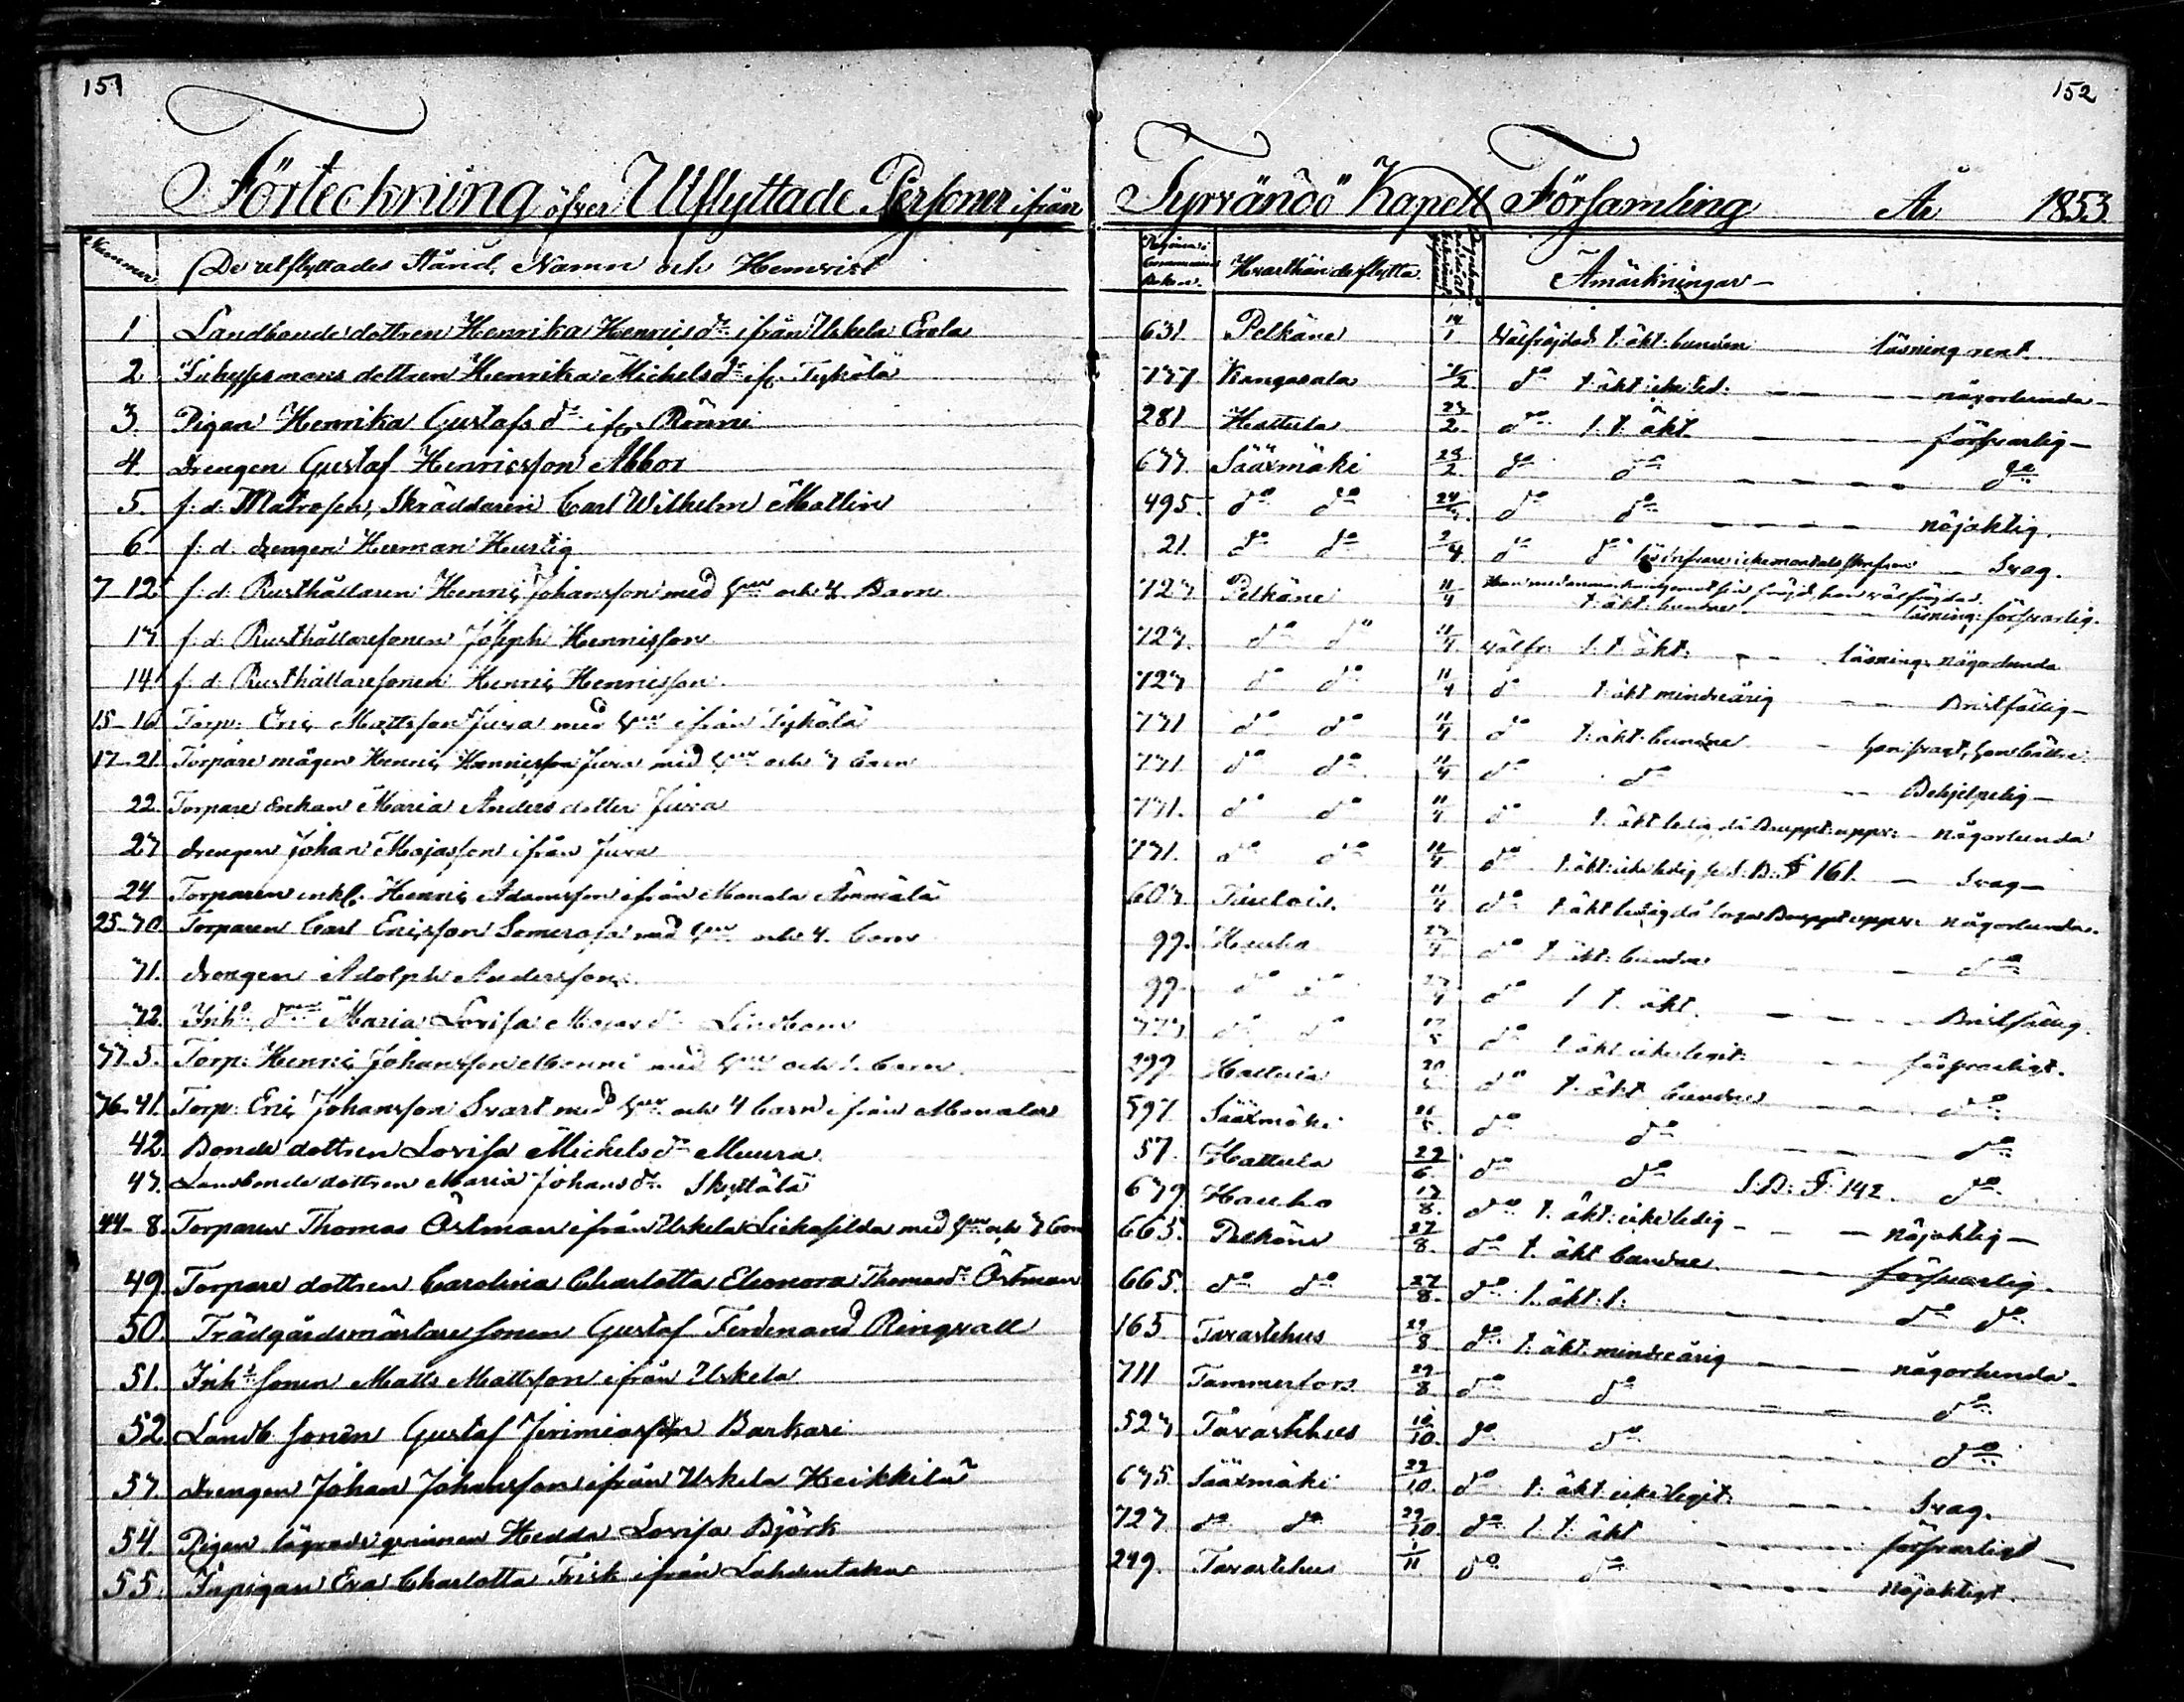 151
152
Förteckning öfver Utflyttade Personer ifrån Tyrvändö Kapell Församling År 1853.
Nummer De utflyttades Stånd, Namn och Hemvist
Hvarthän de flytta. Anmärkningar
1 Landbondedottren Henrika Henricsdr ifrån Uskela Erola 631. Pelkäne 14/1 Välfräjdad t: äkt: bunden läsning rent
2 dottren Henrika Michelsdr ifr. Tykölä Kangasala do t äkt: icke led. någorlunda
3. Pigan Henrika Gustafsdr ifr Rönni 281 Hattula 23/2. do l: t: äkt. försvarlig
4. drengen Gustaf Henricsson Abbor 677 Sääxmäki 23/2. do do do
5. f: d: Matrosen, Skräddaren Carl Wilhelm Mallin 495. do do do do nöjaktig.
6. f: d. drengen Herman Hurtig 21. do do 2/4 do do Svag.
7-12 f: d. Rusthållaren Henric Johansson med och 4. Barn 727 Pelkäne 11/4 t: äkt: bundne läsning: försvarlig.
13. f: d: Rusthållaresonen Joseph Henricsson 727. do do 11/4. välfr: l: t: äkt: läsning någorlunda
14. f. d. Rusthållaresonen Henric Henricsson 727 do do 11/4 do t: äkt mindreårig Bristfällig
15-16 Torp: Eric Mattsson Jura med ifrån Tykölä 771 do do 11/4. do t: äkt: bundne han svagt, hon bättre.
17-21. Torpare mågen Henric Henricsson Jura med och 3 barn 771. do do 11/4 do do Behjelpelig
22. Torpare Enkan Maria Andersdotter Jura 771. do do 11/4 do t: äkt ledig då uppv: någorlunda
23 drengen Johan Majasson ifrån Jura 771. do do 11/4. do t: äkt: icke ledig se S. B. § 161. Svag
24 Torparen enkl. Henric Adamsson ifrån Monala Annala 603. Tuulois. 11/4 do t: äkt ledig då uppv: någorlunda.
25-30. Torparen Carl Ericsson Someroja med och 4. barn 99. Hauho 23/4. do t: äkt: bundne do
31. drengen Adolph Andersson 99. do do 23/4 do l: t. äkt. Bristfällig.
32. Inh: Maria Lovisa Lindbom do do do t: äkt icke legit: försvarligt.
33-5. Torp: Henric Johansson Monni med och 1. barn Hattula do t: äkt bundne do
36-41. Torp: Eric Johansson Svart med och 4 barn ifrån Monala 597. Sääxmäki do do do
42. Bonde dottren Lovisa Michelsdr Muura 57. Hattula 29/6. do do S: B: §: 142. do
43. Landbonde dottren Maria Johansdr Skyttälä 679. Hauho 13/8. do t: äkt: icke ledig nöjaktig
44-8. Torparen Thomas Östman ifrån Uskela med och 3 barn 665. Pelkäne 27/8. do t. äkt bundne försvarlig.
49. Torpare dottren Carolina Charlotta Eleonora Thomasdr Östman 665. do do 27/8. do l. äkt: l: do do
50. Trädgårdsmästare sonen Gustaf Ferdinand Ringvall 165. Tavastehus 29/8 do t: äkt: mindreårig någorlunda
51. Inh: sonen Matts Mattsson ifrån Uskela 711 Tammerfors 29/8 do do do
52. Landb. sonen Gustaf Jerimiasson Barkari 523 Tavastehus 10/10. do do do
53. drengen Johan Johansson ifrån Uskela Heikkilä 675 Sääxmäki 29/10. do t: äkt: icke legit: Svag.
54. Pigan lägrade qvinnan Hedda Lovisa Björk 727 do do 29/10 do l: t: äkt försvarligt
55. Inpigan Eva Charlotta Frisk ifrån Lahdentaka 249. Tavastehus 1/11 do do nöjaktigt.